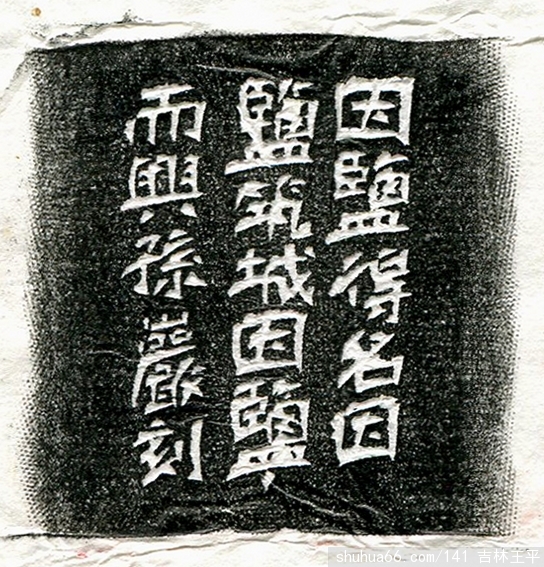 因鹽得名因
鹽筑城因鹽
而興孫嚴刻
shuhua66.com/141 吉林王平